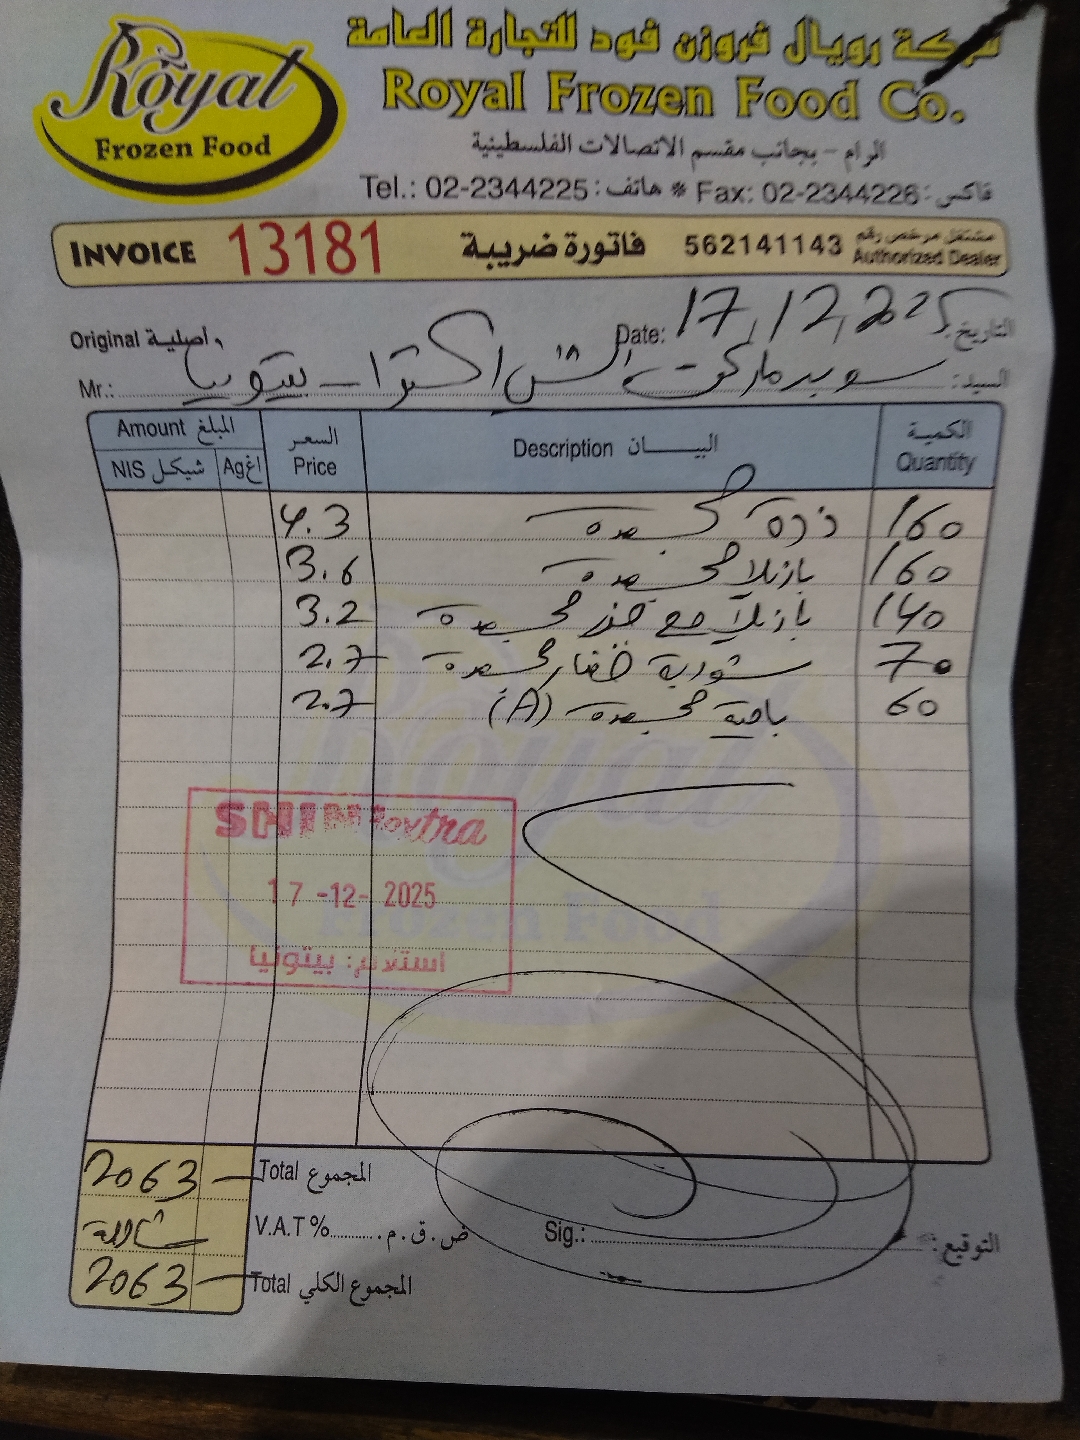 Royal
Frozen Food
شركة رويال فروزن فود للتجارة العامة
Royal Frozen Food Co.
الرام - بجانب مقسم الاتصالات الفلسطينية
Tel.: 02-2344225 : هاتف * Fax: 02-2344226 : فاكس
INVOICE 13181 فاتورة ضريبة 562141143 مشتغل مرخص رقم Authorized Dealer
Original أصلية Date: 17,12,2025 التاريخ:
Mr.: سوبرماركت الشني اكسترا - بيتونيا السيد:
Amount المبلغ السعر Price Description البيـــــان الكمية Quantity
NIS شيكل Ag اغ
4.3 ذرة مجمدة 160
3.6 بازيلا مجمدة 160
3.2 بازيلا مع جزر مجمدة 140
2.7 شوربة خضار مجمدة 70
2.7 بامية مجمدة (A) 60
Royal
Frozen Food
extra
17-12-2025
استلام: بيتونيا
2063 Total المجموع
شاملة V.A.T% ض.ق.م. Sig.: التوقيع:
2063 Total المجموع الكلي